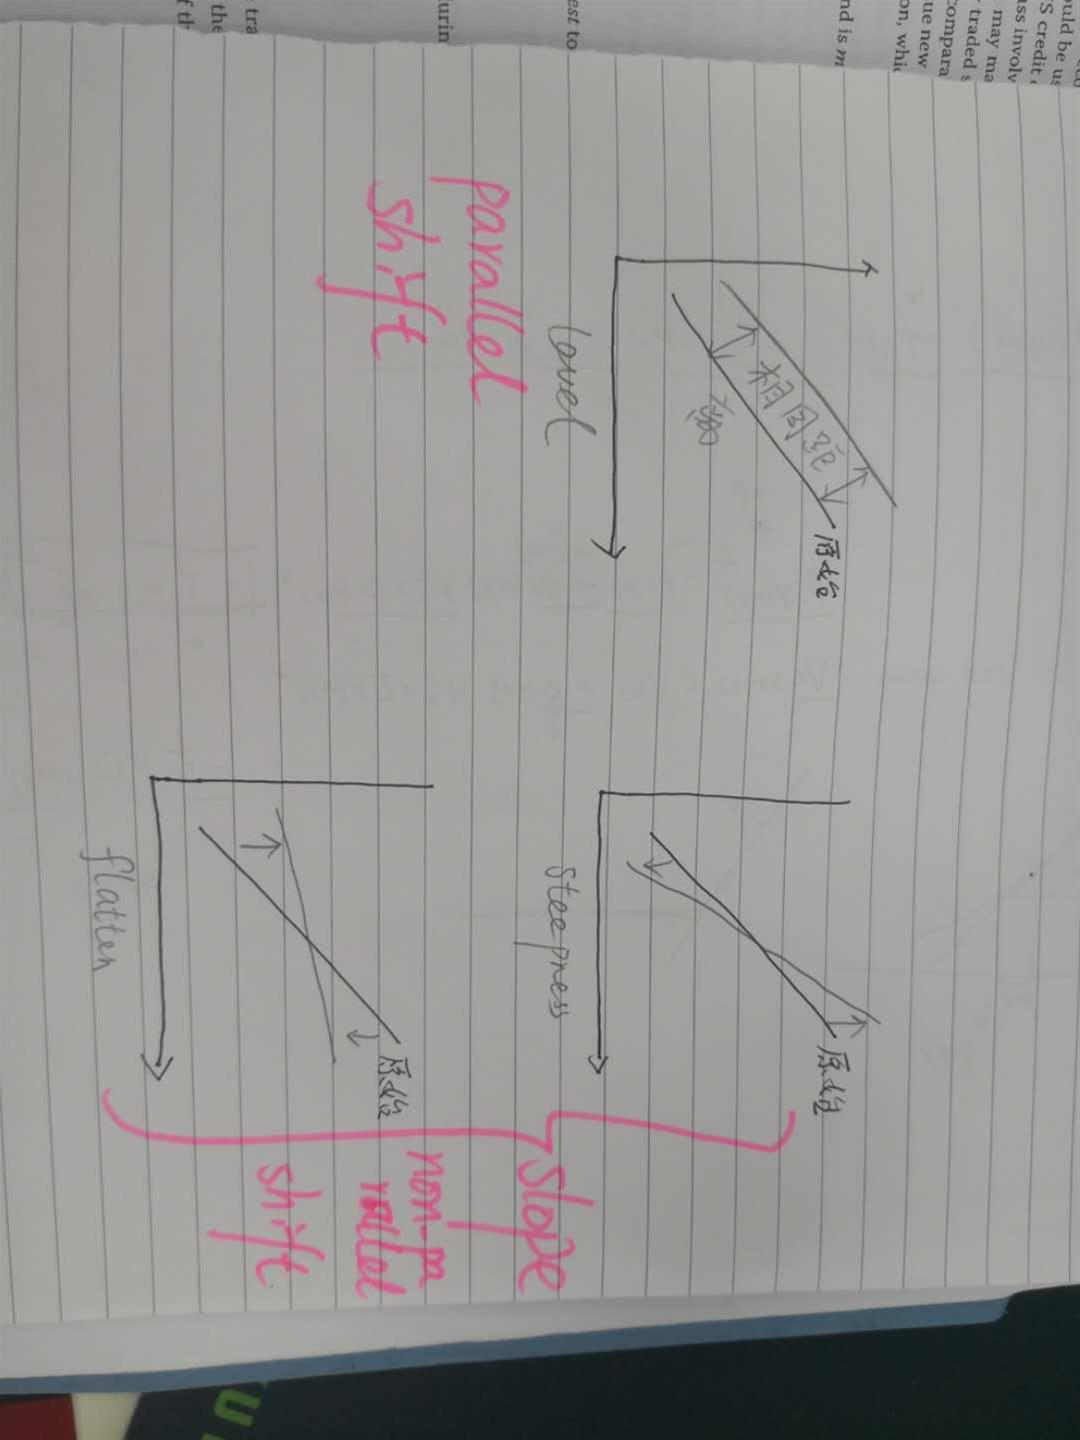 ould be us
S credit
ass involv
may ma
traded s
compara
ue new
on, whic
nd is m
est to
urin
tra
the
f th
原始
相同距
离
level
parallel
shift
原始
steepness
原始
flatten
slope
non-pa
rallel
shift